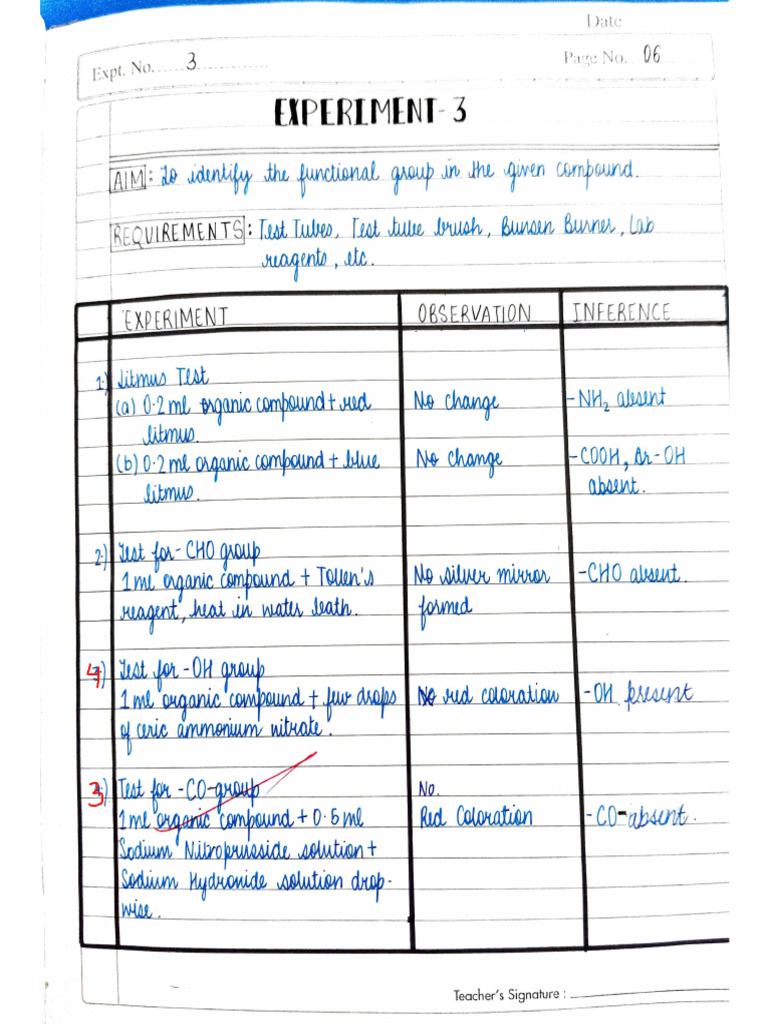 Date
Expt. No. 3
Page No. 06
EXPERIMENT-3
AIM: To identify the functional group in the given compound.
REQUIREMENTS: Test Tubes, Test tube brush, Bunsen Burner, Lab
reagents, etc.
EXPERIMENT OBSERVATION INFERENCE
1.) Litmus Test
(a) 0.2 ml organic compound + red No change -NH₂ absent
litmus.
(b) 0.2 ml organic compound + blue No change -COOH, Ar-OH
litmus. absent.
2.) Test for -CHO group
1 ml organic compound + Tollen's No silver mirror -CHO absent.
reagent, heat in water bath. formed
4) Test for -OH group
1 ml organic compound + few drops red coloration -OH present
of ceric ammonium nitrate.
3) Test for -CO-group No.
1 ml organic compound + 0.5 ml Red Coloration -CO-absent.
Sodium Nitroprusside solution +
Sodium Hydronide solution drop-
wise.
Teacher's Signature :